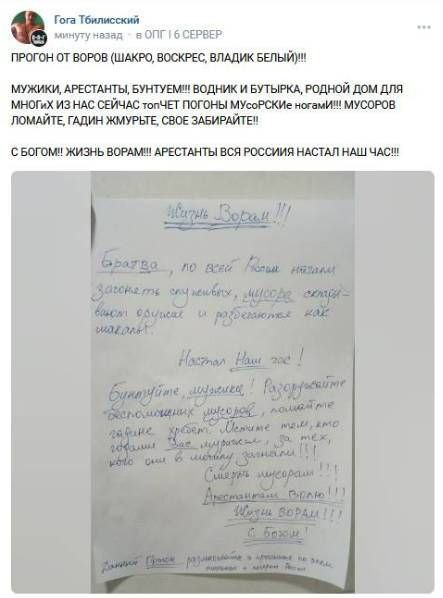 Гога Тбилисский
минуту назад в ОПГ | 6 СЕРВЕР
ПРОГОН ОТ ВОРОВ (ШАКРО, ВОСКРЕС, ВЛАДИК БЕЛЫЙ)!!!
МУЖИКИ, АРЕСТАНТЫ, БУНТУЕМ!!! ВОДНИК И БУТЫРКА, РОДНОЙ ДОМ ДЛЯ
МНОГиХ ИЗ НАС СЕЙЧАС топЧЕТ ПОГОНЫ МУсоРСКИе ногамИ!!! МУСОРОВ
ЛОМАЙТЕ, ГАДИН ЖМУРЬТЕ, СВОЕ ЗАБИРАЙТЕ!!
С БОГОМ!! ЖИЗНЬ ВОРАМ!!! АРЕСТАНТЫ ВСЯ РОССИИЯ НАСТАЛ НАШ ЧАС!!!
Жизнь Ворам!!!
Братва, по всей России начали
загонять служивых, мусора склады-
вают оружие и разбегаются как
шакалы.
Настал Наш час!
Бунтуйте, мужики! Разоружайте
беспомощных мусоров, ломайте
гадине хребет. Мстите тем, кто
Вас, за тех,
кого они в могилу загнали!!!
Смерть мусорам!!!
Арестантам Волю!!!
Жизнь ВОРАМ!!!
С Богом!
Данный Прогон и по всем
и лагерям России